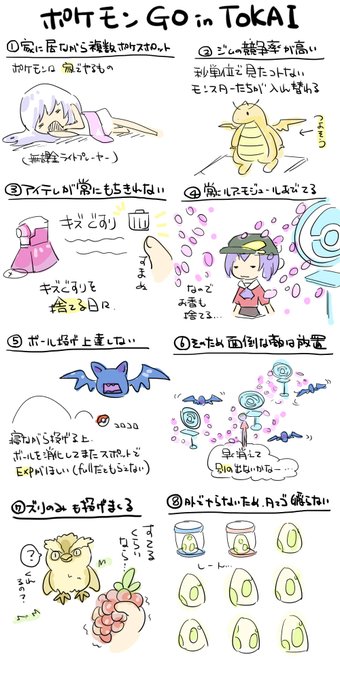 ポケモン GO in TOKAI
① 家に居ながら複数ポケスポット
ポケモンは家でやるもの
(無課金ライトプレーヤー)
② ジムの競争率が高い
秒単位で見たっとない
モンスターたちが入れ替わる
つよそう
③ アイテムが常にもちきれない
キズぐすり
すまぬ
キズぐすりを
捨てる日々
④ 常にルアーモジュールおでてる
なので
お香も
捨てる…
⑤ ボール投げ上達しない
コロコロ
寝ながら投げる上
ボールを消化してまたスポットで
EXPがほしい(fullだともらえない)
⑥ そのため面倒な敵は放置
早く消えて
別の出ないかな…
⑦ ズリのみも投げまくる
?
くれるの?
すてる
くらい
なら…
⑧ 外でやらないため、タマゴ孵らない
しーん…